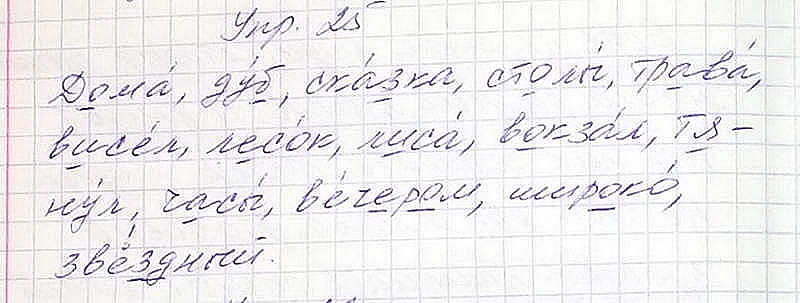 Упр. 25
Дома́, ду́б, ска́зка, столы́, трава́,
висе́л, лесо́к, лиса́, вокза́л, тя-
ну́л, часы́, ве́чером, широко́,
звёздный.